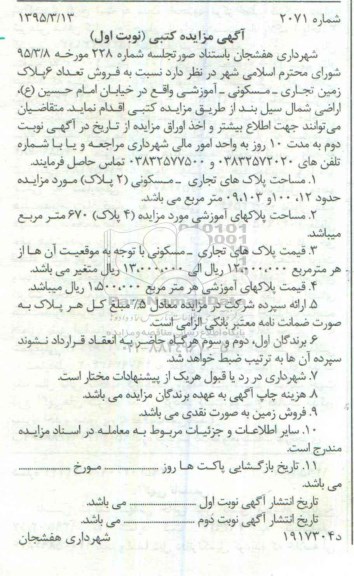 شماره ۲۰۷۱
۱۳۹۵/۳/۱۳
آگهی مزایده کتبی (نوبت اول)
شهرداری هفشجان باستناد صورتجلسه شماره ۲۲۸ مورخه ۹۵/۳/۸
شورای محترم اسلامی شهر در نظر دارد نسبت به فروش تعداد ۶پلاک
زمین تجاری ـ مسکونی ـ آموزشی واقع در خیابان امام حسین (ع)،
اراضی شمال سیل بند از طریق مزایده کتبی اقدام نماید. متقاضیان
می‌توانند جهت اطلاع بیشتر و اخذ اوراق مزایده از تاریخ در آگهی نوبت
دوم به مدت ۱۰ روز به واحد امور مالی شهرداری مراجعه و یا با شماره
تلفن های ۰۳۸۳۲۵۷۲۰۲۰ و ۰۳۸۳۲۵۷۷۵۰۰ تماس حاصل فرمایند.
۱. مساحت پلاک های تجاری ـ مسکونی (۲ پلاک) مورد مزایده
حدود ۱۲، ۱۰۰و ۰۹،۱۰۳ متر مربع می باشد.
۲. مساحت پلاکهای آموزشی مورد مزایده (۴ پلاک) ۶۷۰ متر مربع
میباشد.
۳. قیمت پلاک های تجاری ـ مسکونی با توجه به موقعیت آن ها از
هر مترمربع ۱۲،۰۰۰،۰۰۰ ریال الی ۱۳،۰۰۰،۰۰۰ ریال متغیر می باشد.
۴. قیمت پلاکهای آموزشی هر متر مربع ۱،۵۰۰،۰۰۰ ریال میباشد.
۵. ارائه سپرده شرکت در مزایده معادل ۵٪ مبلغ کل هر پلاک به
صورت ضمانت نامه معتبر بانکی الزامی است.
۶. برندگان اول، دوم و سوم هرگاه حاضر به انعقاد قرارداد نشوند
سپرده آن ها به ترتیب ضبط خواهد شد.
۷. شهرداری در رد یا قبول هریک از پیشنهادات مختار است.
۸. هزینه چاپ آگهی به عهده برندگان مزایده می باشد.
۹. فروش زمین به صورت نقدی می باشد.
۱۰. سایر اطلاعات و جزئیات مربوط به معامله در اسناد مزایده
مندرج است.
۱۱. تاریخ بازگشایی پاکت ها روز ............ مورخ ............
می باشد.
تاریخ انتشار آگهی نوبت اول ............ می باشد.
تاریخ انتشار آگهی نوبت دوم ............ می باشد.
۱۹۱۷۳۰۴د
شهرداری هفشجان